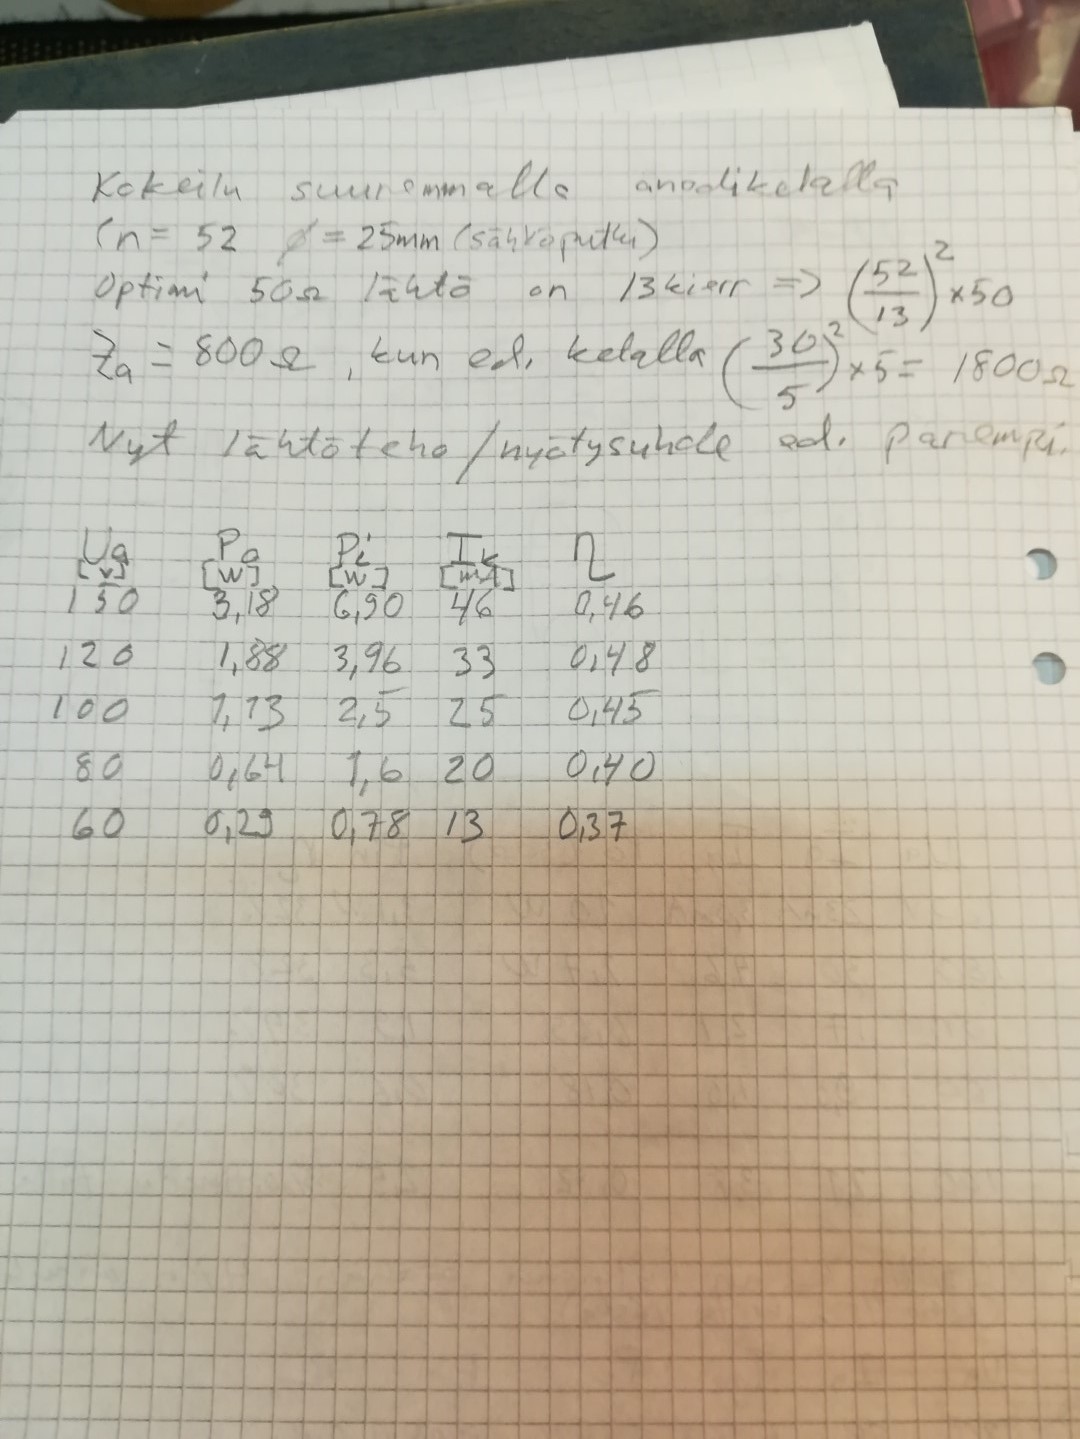 Kokeilu suuremmalla anodikelalla
(n = 52 ø = 25mm (sähköputki)
Optimi 50Ω lähtö on 13 kierr => (52/13)² × 50
Za = 800Ω, kun ed. kelalla (30/5)² × 5 = 1800Ω
Nyt lähtöteho/hyötysuhde ed. parempi.
Ua Po Pi Ik η
[V] [W] [W] [mA]
150 3,18 6,90 46 0,46
120 1,88 3,96 33 0,48
100 1,13 2,5 25 0,45
80 0,64 1,6 20 0,40
60 0,29 0,78 13 0,37